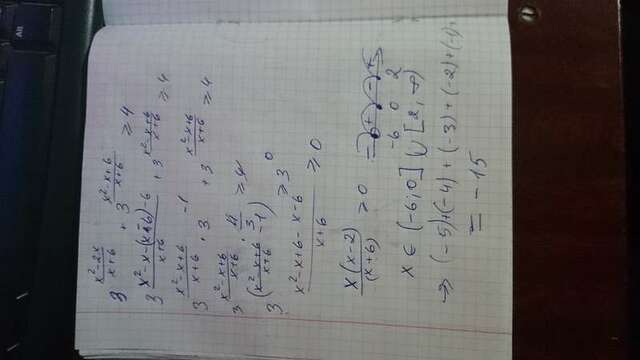 3^((x²-2x)/(x+6)) + 3^((x²-x+6)/(x+6)) ≥ 4
3^((x²-x-(x+6)-6)/(x+6)) + 3^((x²-x+6)/(x+6)) ≥ 4
3^((x²-x+6)/(x+6) -1) + 3^((x²-x+6)/(x+6)) ≥ 4
3^((x²-x+6)/(x+6)) · 4/3 ≥ 4
3^((x²-x+6)/(x+6) -1) ≥ 3^0
(x²-x+6-x-6)/(x+6) ≥ 0
x(x-2)/(x+6) ≥ 0
-6 0 2
x ∈ (-6;0] ∪ [2,∞)
⇒ (-5)+(-4)+(-3)+(-2)+(-1)
= -15